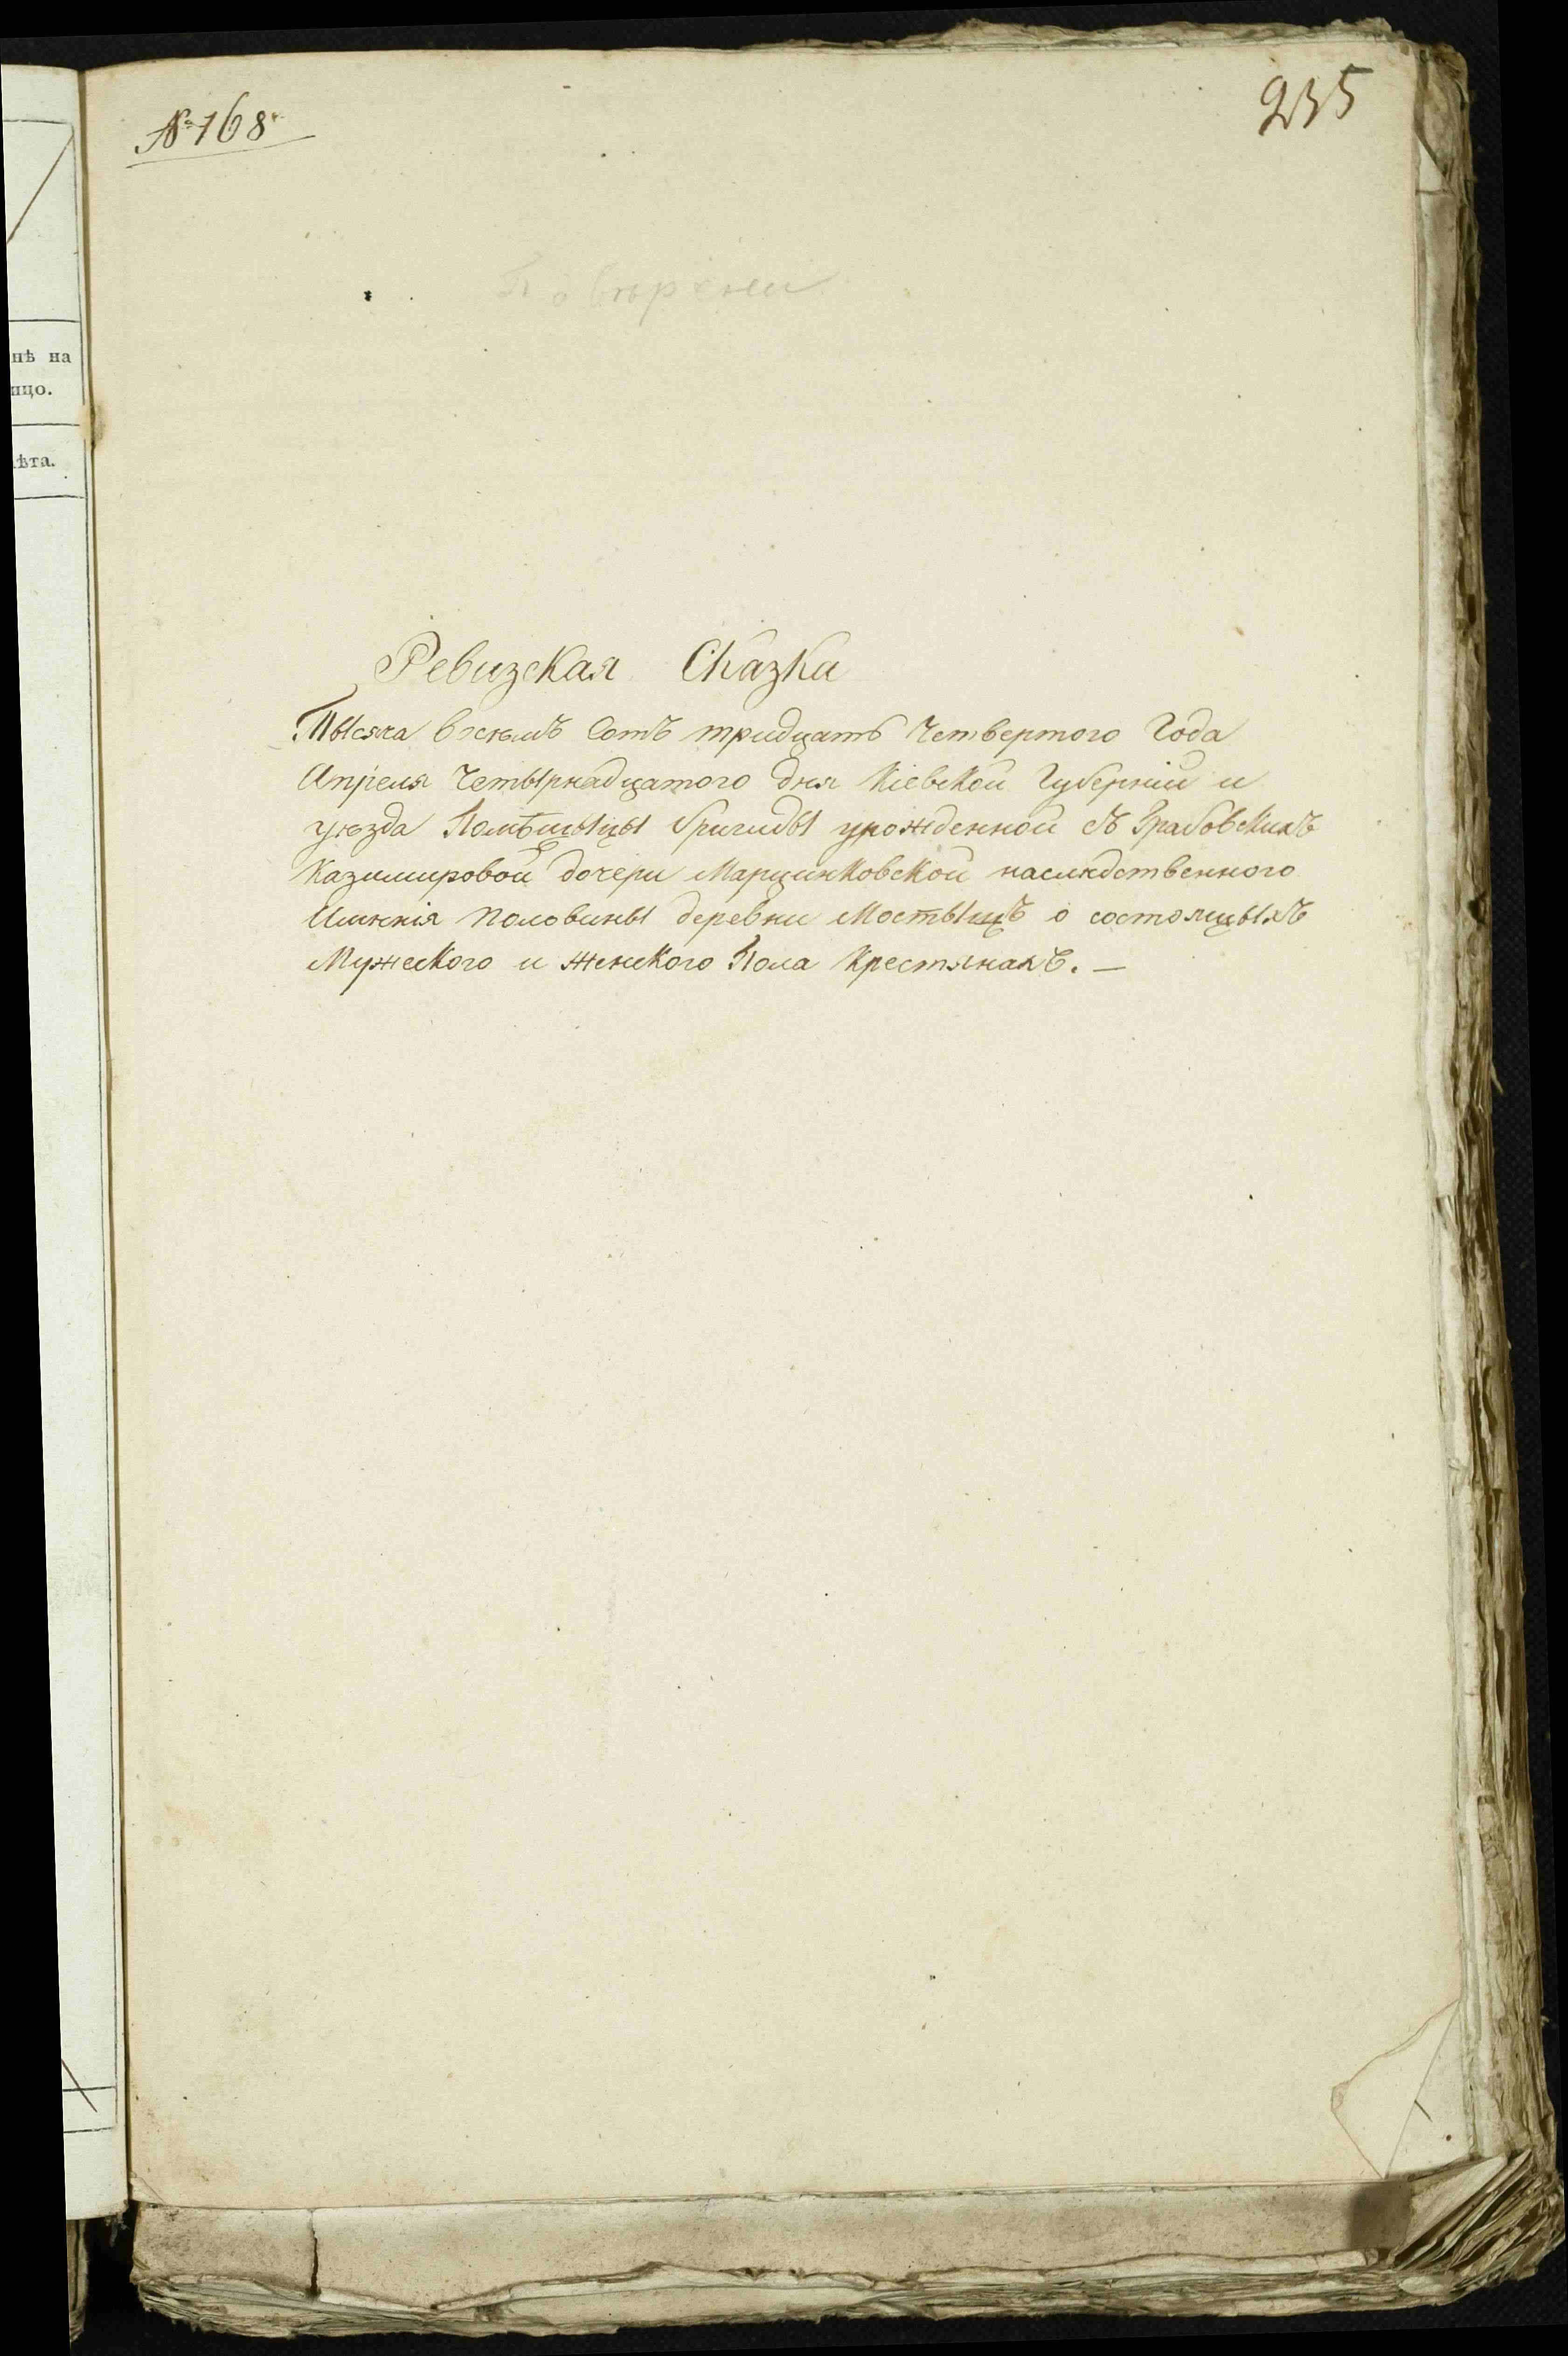 № 168
235
нѣ на
ицо.
ѣта.
Ревизская Сказка
Тысяча восемъ Сотъ тридцать Четвертого Года
Апреля Четырнадцатого дня Кіевской Губерніи и
уѣзда Помѣщыцы Бригиды урожденной съ Грабовскихъ
Казимировой дочери Марцинковской наслѣдственного
Имѣнія половины деревни Мостыщъ о состоящыхъ
Мужеского и женского Пола Крестянахъ. —